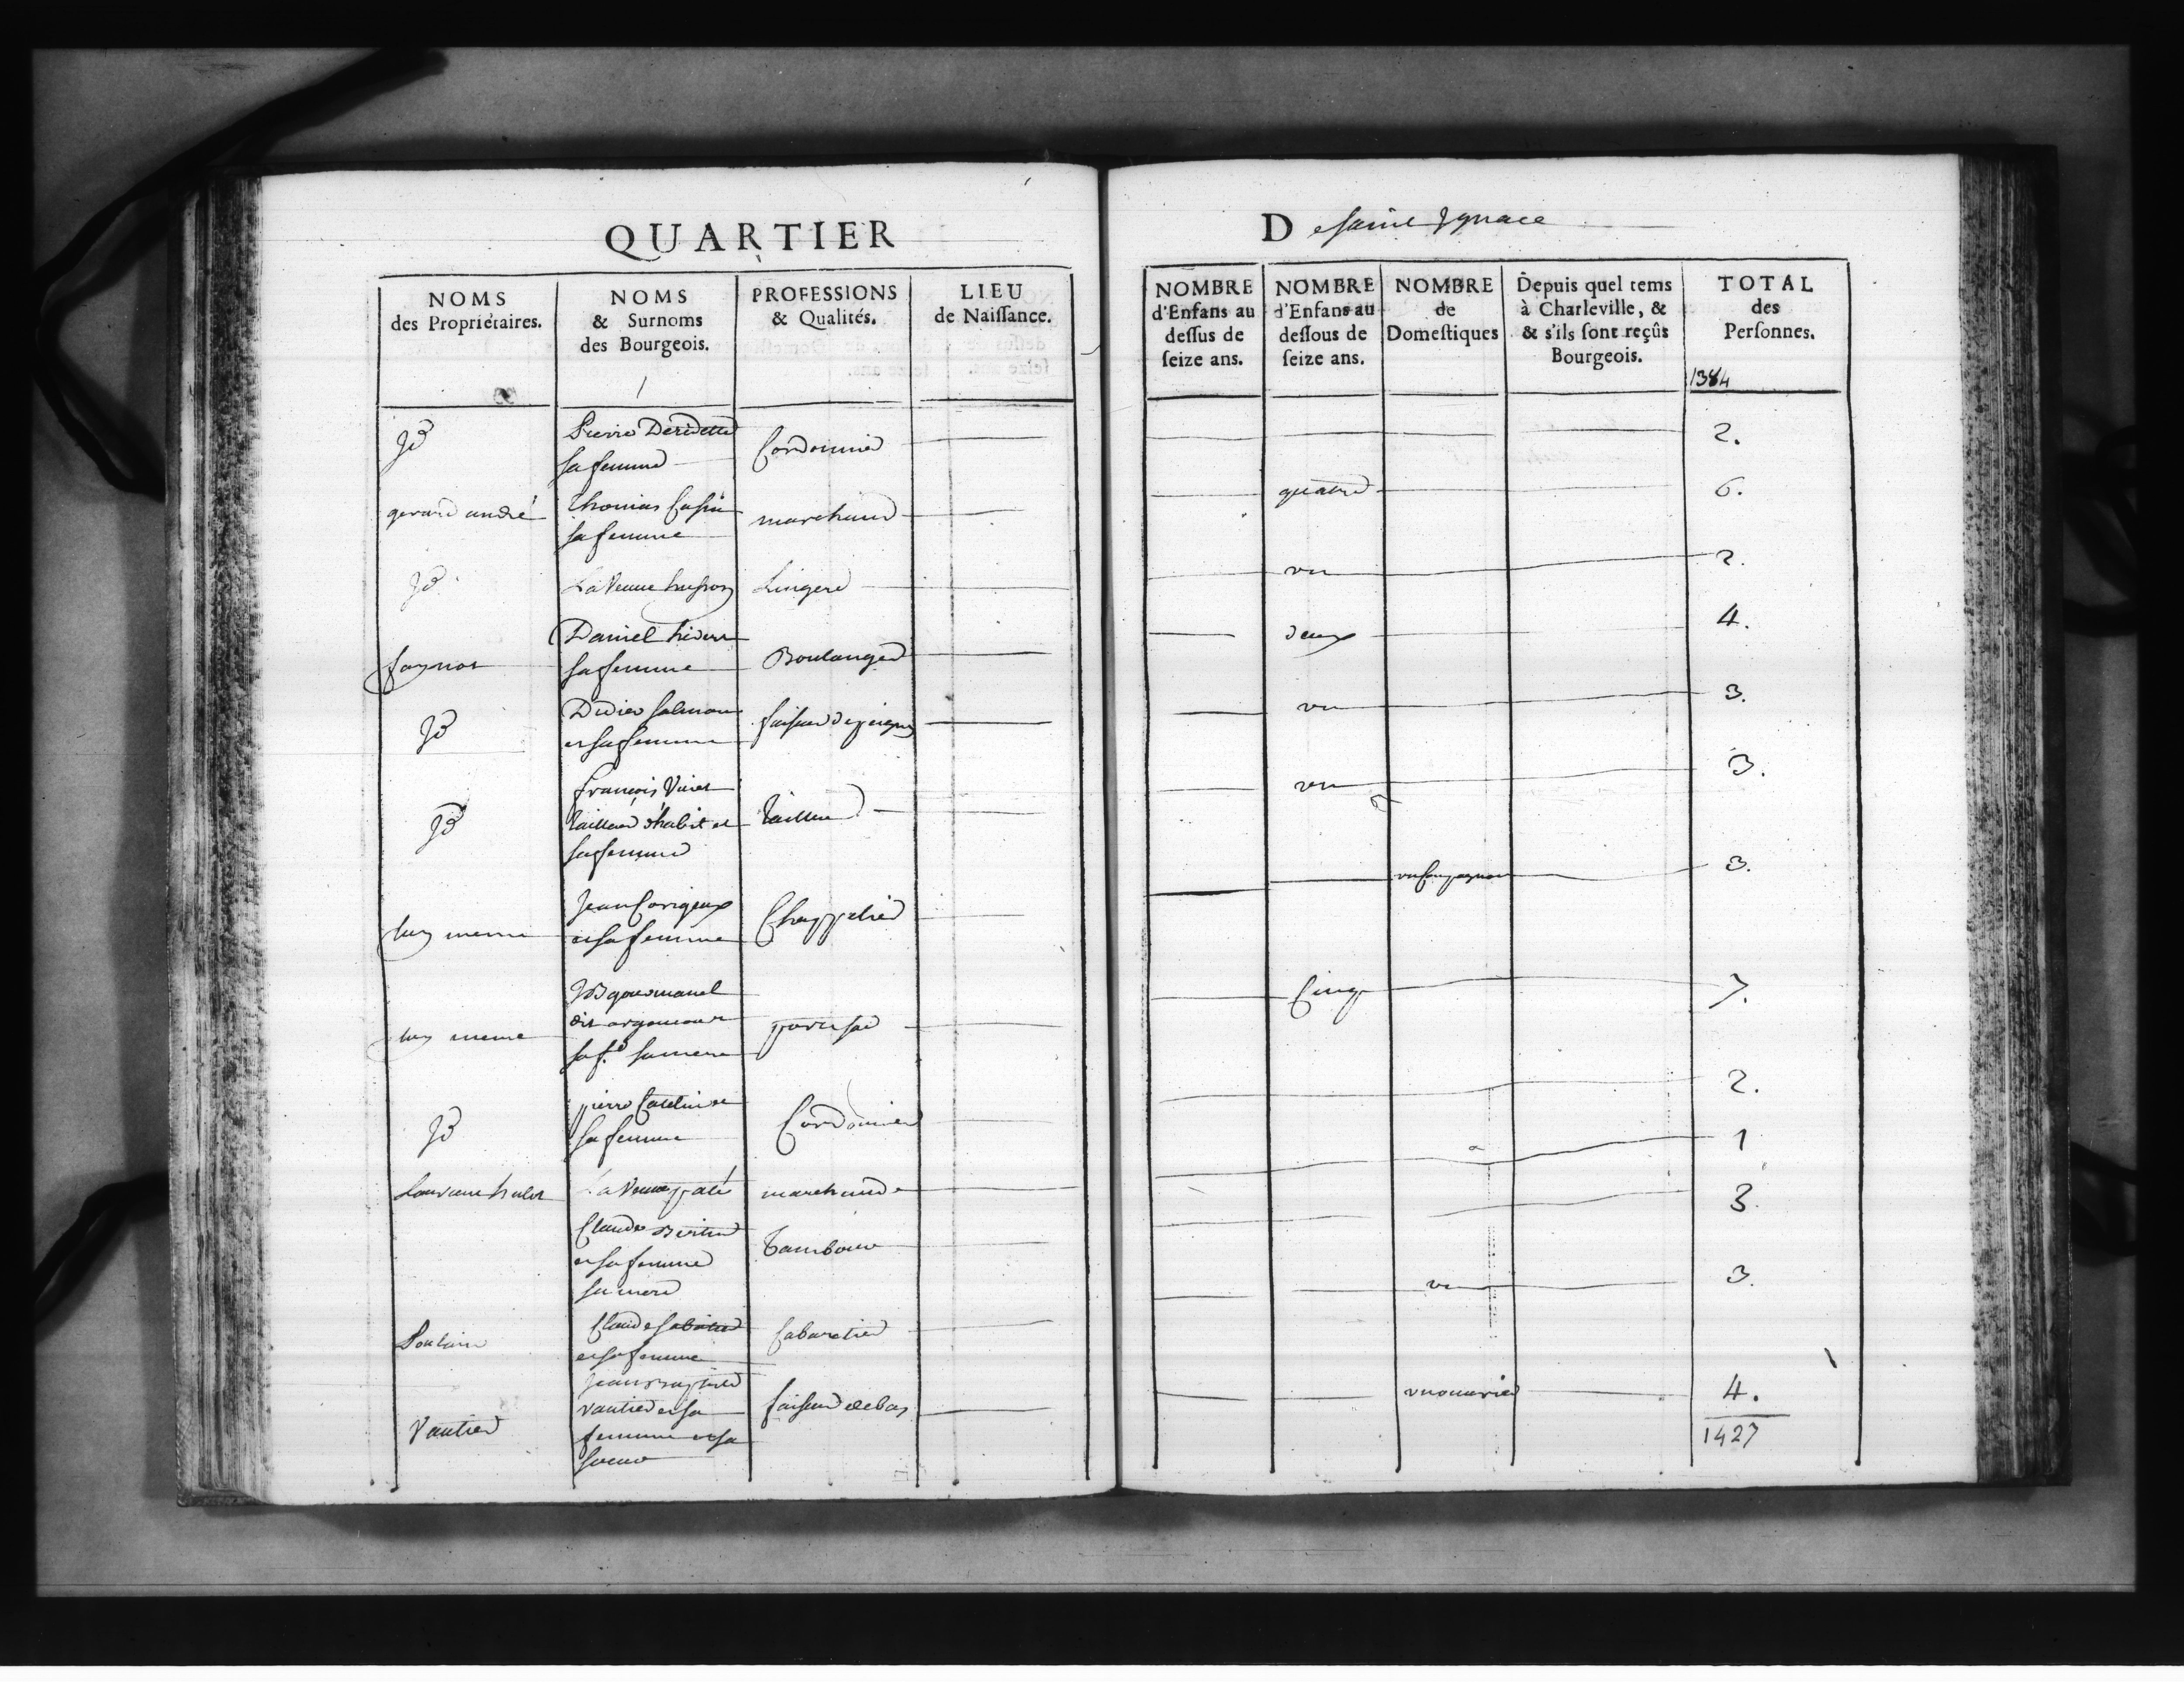 QUARTIER
D e saint Ignace
NOMS
des Propriétaires.
NOMS
& Surnoms
des Bourgeois.
PROFESSIONS
& Qualités.
LIEU
de Naissance.
NOMBRE
d'Enfans au
dessus de
seize ans.
NOMBRE
d'Enfans au
dessous de
seize ans.
NOMBRE
de
Domestiques
Depuis quel tems
à Charleville, &
& s'ils sont reçûs
Bourgeois.
TOTAL
des
Personnes.
1384
Jd
Pierre
sa femme
Cordonnier
2.
gerard andré
Thomas
sa femme
marchand
quatre
6.
Jd
La Veuve husson
Lingere
un
2.
faynot
Daniel
sa femme
Boulanger
deux
4.
Jd
Didier salmon
et sa femme
faiseur de peignes
un
3.
Jd
françois
tailleur d'habit et
sa femme
tailleur
un
3.
luy meme
Jean Corigeux
et sa femme
Chappelier
un Compagnon
3.
luy meme
dit
sa f.e sa mere
Cinq
7.
Jd
pierre Catelin et
sa femme
Cordonnier
2.
hulot
La Veuve paté
marchande
1
Claude
et sa femme
sa mere
Tambour
3.
Poulain
Claude
et sa femme
Cabaretier
un
3.
Vautier
Jean
vautier et sa
femme et sa
soeur
faiseur de bas
un ouvrier
4.
1427